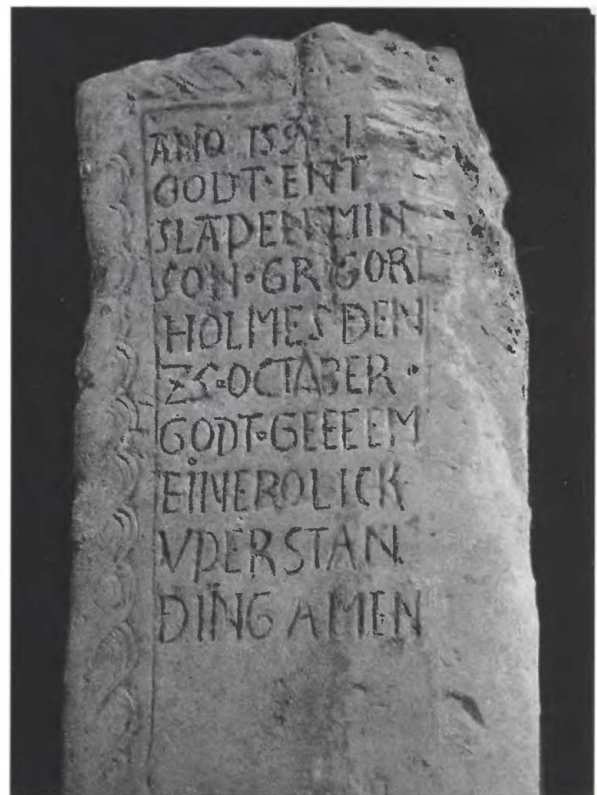 ANO 159. I
GODT·ENT
SLAPEN MIN
SON·GRIGORI
HOLMES DEN
25·OCTABER·
GODT·GEEEEM
EINEROLICK
VPERSTAN
DING AMEN